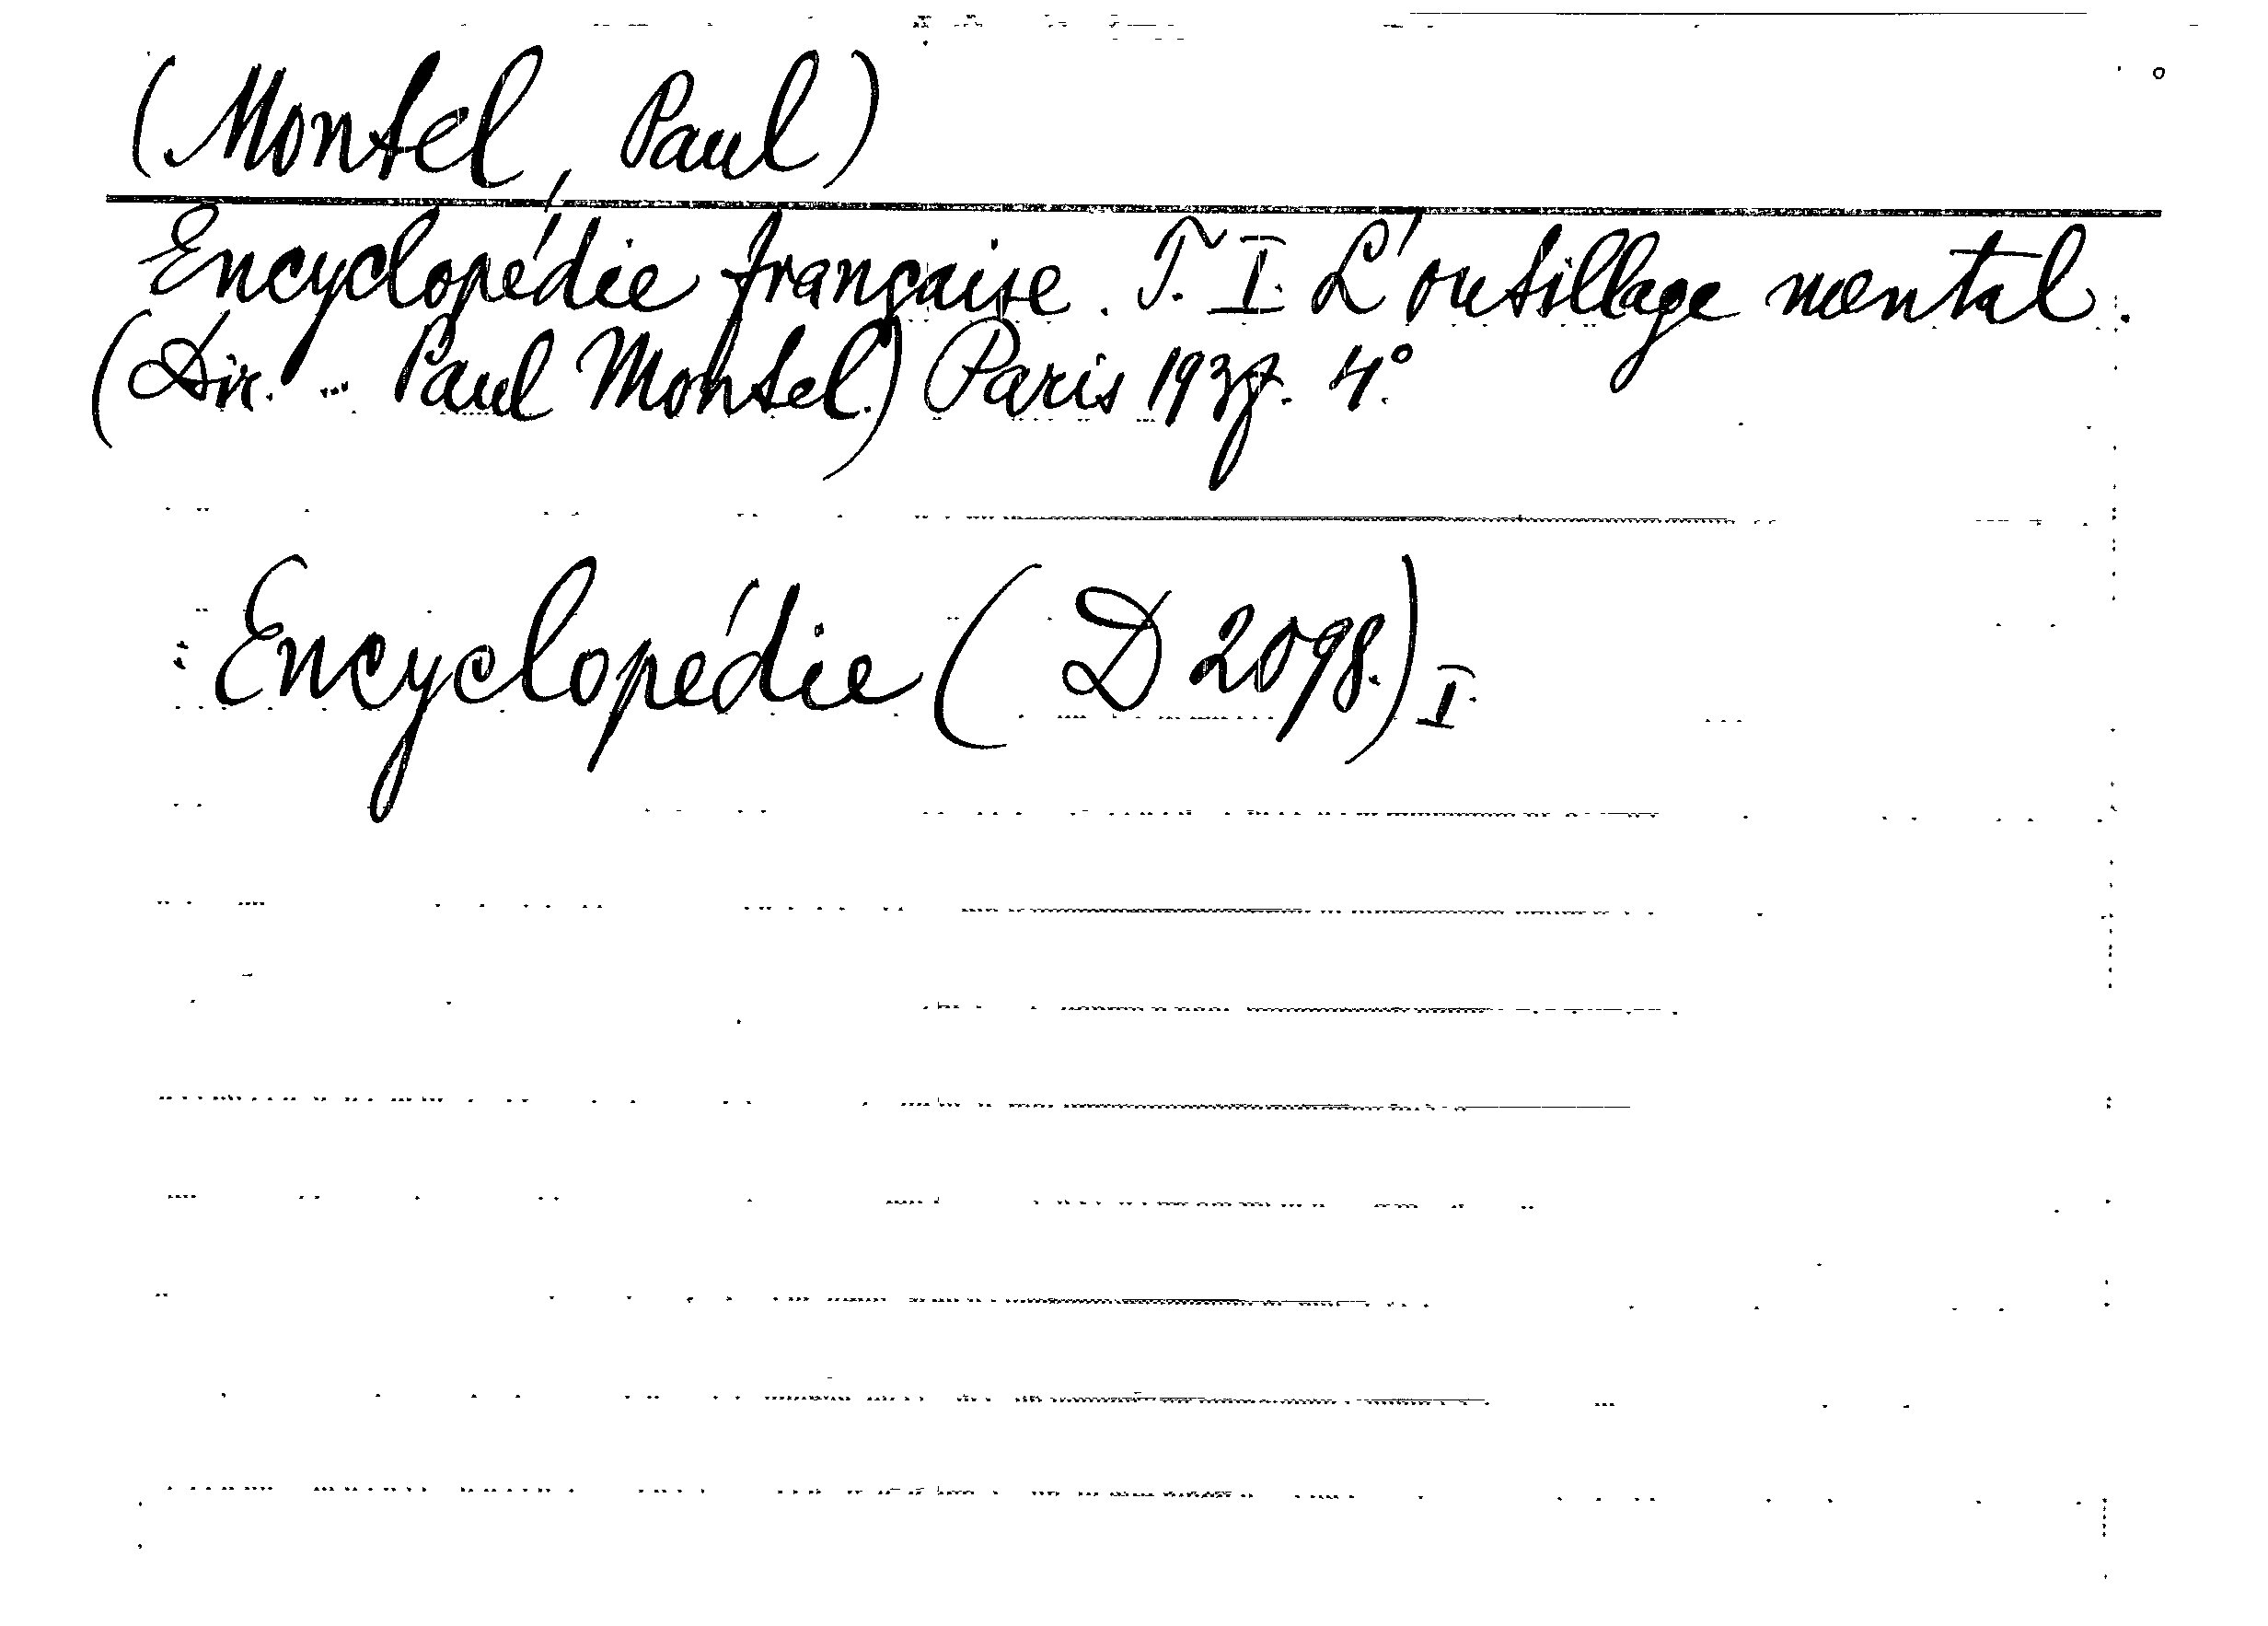 (Montel, Paul)
Encyclopédie française. T. I. L'outillage mental.
(Dir. ... Paul Montel.) Paris 1937. 4°.
Encyclopédie (D 2098.) I.